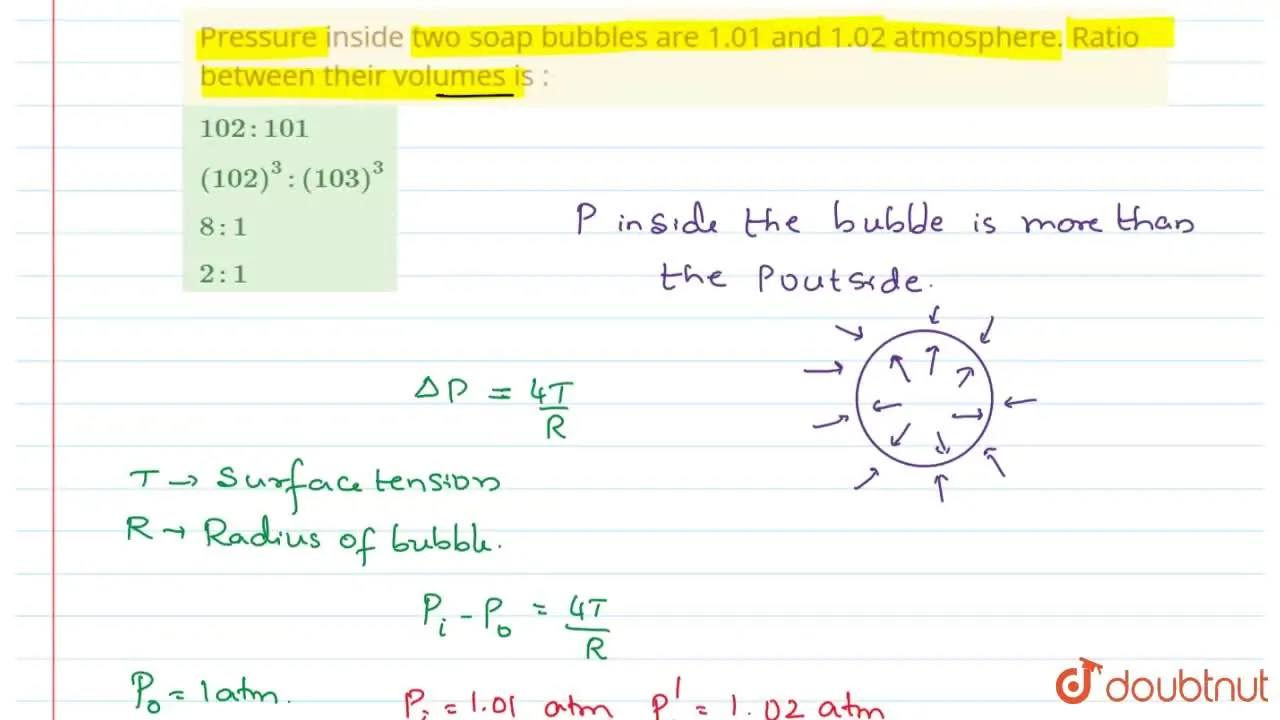 Pressure inside two soap bubbles are 1.01 and 1.02 atmosphere. Ratio
between their volumes is :
102 : 101
(102)³ : (103)³
8 : 1
2 : 1
P inside the bubble is more than
the Poutside.
ΔP = 4T/R
T → Surface tension
R → Radius of bubble.
Pi - Po = 4T/R
Po = 1 atm.
Pi = 1.01 atm P' = 1.02 atm
doubtnut